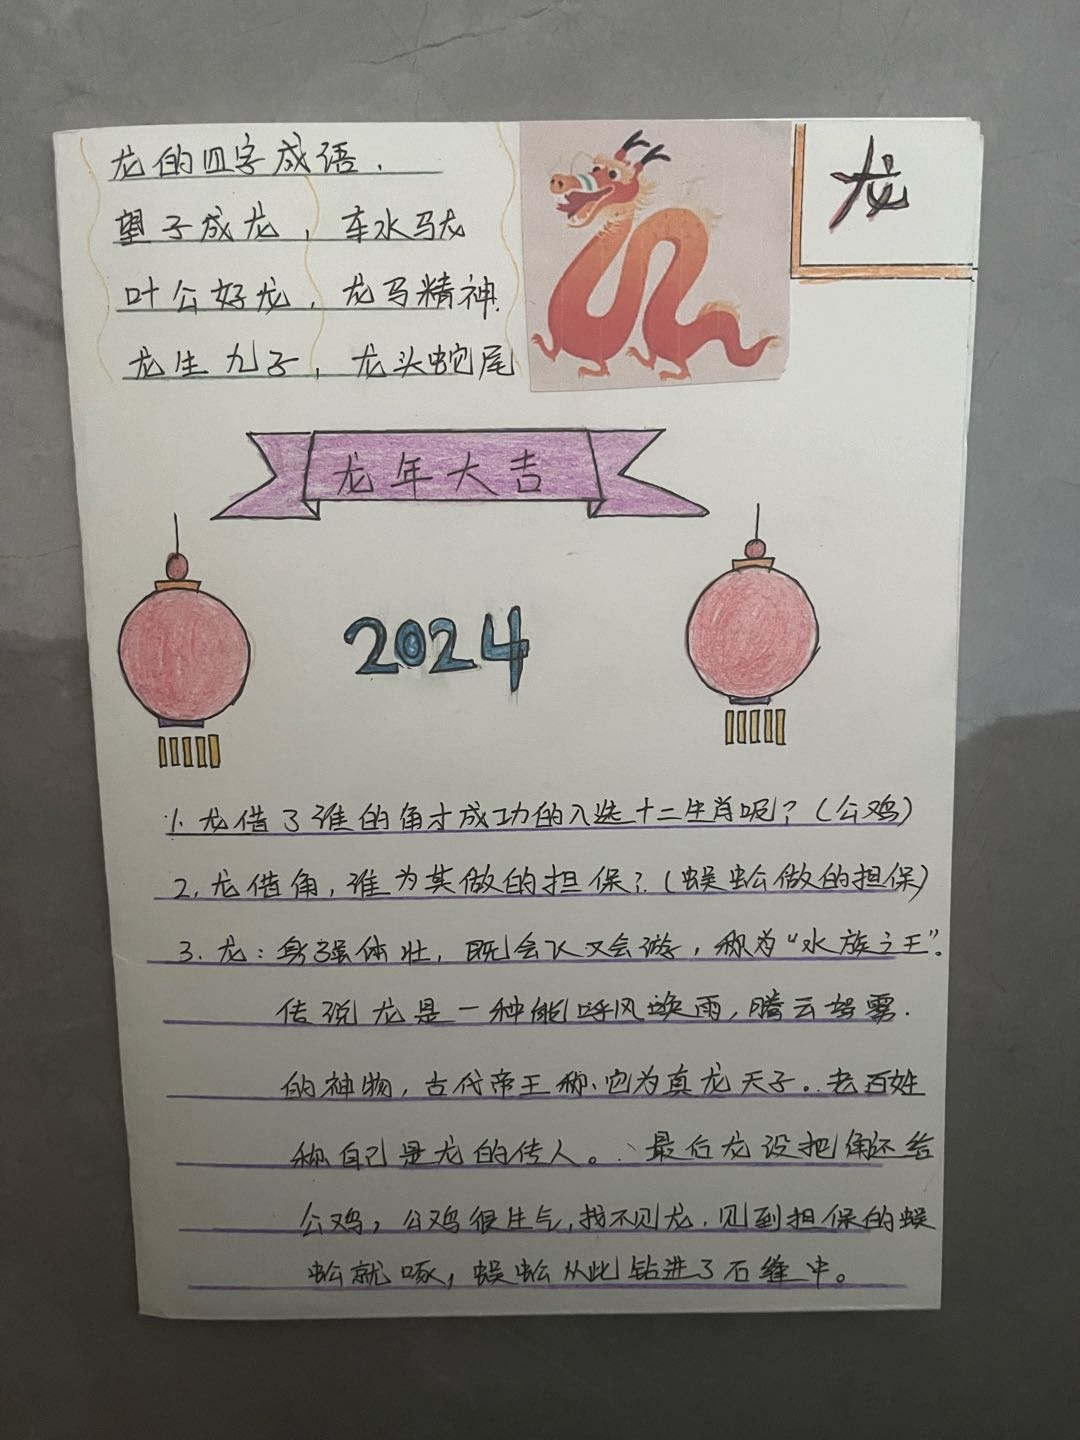 龙的四字成语.
龙
望子成龙，车水马龙
叶公好龙，龙马精神.
龙生九子，龙头蛇尾
龙年大吉
2024
1. 龙借了谁的角才成功的入选十二生肖呢？（公鸡）
2. 龙借角，谁为其做的担保？（蜈蚣做的担保）
3. 龙：身强体壮，既会飞又会游，称为“水族之王”。
传说龙是一种能呼风唤雨，腾云驾雾.
的神物，古代帝王称它为真龙天子。老百姓
称自己是龙的传人。最后龙没把角还给
公鸡，公鸡很生气，找不见龙，见到担保的蜈
蚣就啄，蜈蚣从此钻进了石缝中。